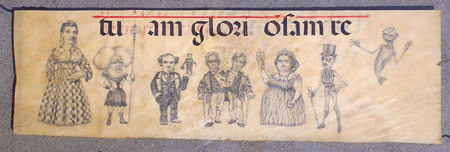 tu am glori osam re